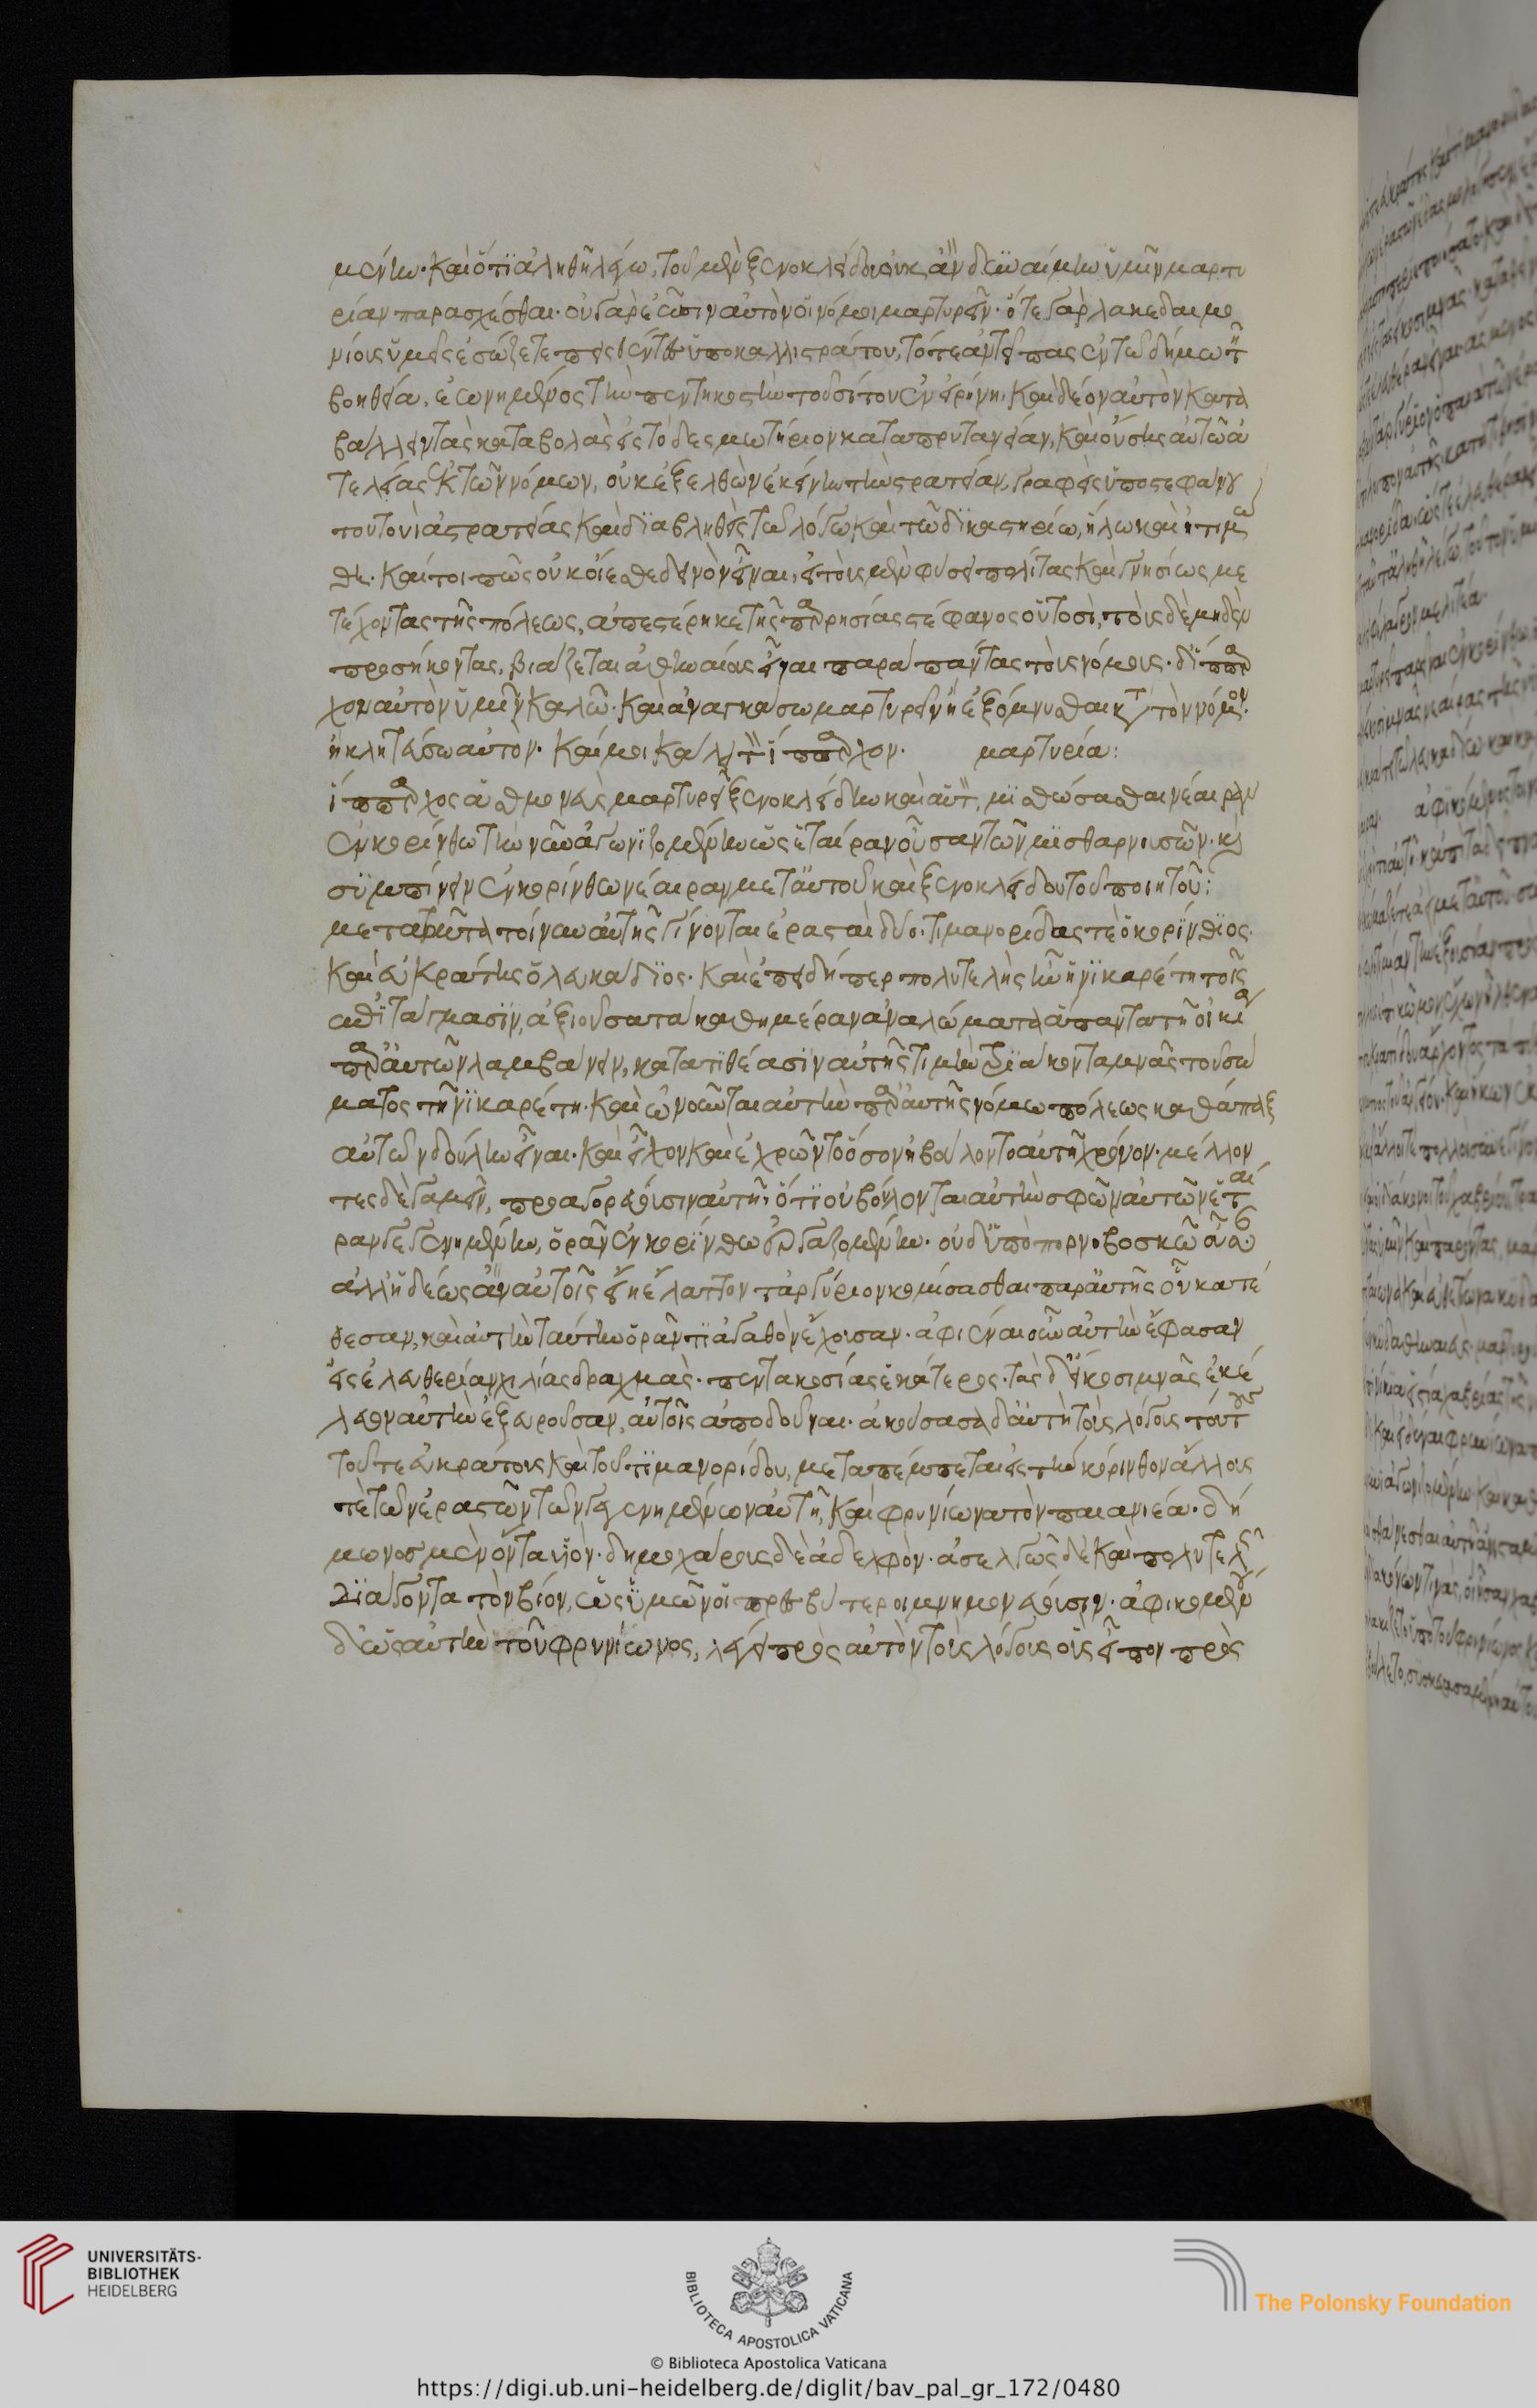 μένην· καὶ ὅτι ἀληθῆ λέγω, τοῦ μὲν ξενοκλείδου οὐκ ἂν δυναίμην ὑμῖν μαρτυ
ρίαν παρασχέσθαι· οὐ γὰρ ἐῶσιν αὐτὸν οἱ νόμοι μαρτυρεῖν· ὅτε γὰρ λακεδαιμο
νίους ὑμεῖς ἐσώζετε πεισθέντες ὑπὸ καλλιστράτου, τότε ἀντείπας ἐν τῶ δήμω τῆ
βοηθεία, ἐωνημένος τὴν πεντηκοστὴν τοῦ σίτου ἐν εἰρήνη, καὶ δέον αὐτὸν κατα
βάλλειν τὰς καταβολὰς εἰς τὸ δεσμωτήριον κατὰ πρυτανείαν, καὶ οὔσης αὐτῶ ἀ
τελείας ἐκ τῶν νόμων, οὐκ ἐξελθὼν ἐκείνην τὴν στρατείαν, γραφεὶς ὑπὸ στεφάνου
τουτουὶ ἀστρατείας καὶ διαβληθεὶς τῶ λόγω καὶ τῶ δικαστηρίω, ἥλω καὶ ἠτιμώ
θη· καίτοι πῶς οὐκ οἴεσθε δεινὸν εἶναι, εἰ τοὺς μὲν φύσει πολίτας καὶ γνησίως με
τέχοντας τῆς πόλεως, ἀπεστέρηκε τῆς παρρησίας στέφανος οὑτοσὶ, τοὺς δὲ μηδὲν
προσήκοντας, βιάζεται ἀθηναίους εἶναι παρὰ πάντας τοὺς νόμους· δι ἵππαρ
χον αὐτὸν ὑμῖν καλῶ· καὶ ἀναγκάσω μαρτυρεῖν ἢ ἐξόμνυσθαι κατὰ τὸν νόμον·
ἢ κλητεύσω αὐτὸν· καί μοι κάλει τὸν ἵππαρχον· μαρτυρία:
ἵππαρχος ἀθμονεὺς μαρτυρεῖ ξενοκλείδην καὶ αὐτὸν, μισθώσασθαι νέαιραν
ἐν κορίνθω τὴν νῦν ἀγωνιζομένην ὡς ἑταίραν οὖσαν τῶν μισθαρνουσῶν· καὶ
συμπίνειν ἐν κορίνθω νέαιραν μετ αὐτοῦ καὶ ξενοκλείδου τοῦ ποιητοῦ:
μετὰ ταῦτα τοίνυν αὐτῆς γίνονται ἐρασταὶ δύο· τιμανορίδας τὲ ὁ κορίνθιος·
καὶ εὐκράτης ὁ λευκάδιος· καὶ ἐπειδήπερ πολυτελὴς ἦν ἡ νικαρέτη τοῖς
ἐπιτάγμασιν, ἀξιοῦσα τὰ καθημέραν ἀναλώματα ἅπαντα τῆ οἰκία
παρ αὐτῶν λαμβάνειν, κατατιθέασιν αὐτῆς τιμὴν τριάκοντα μνᾶς τοῦ σώ
ματος τῆ νικαρέτη· καὶ ὠνοῦνται αὐτὴν παρ αὐτῆς νόμω πόλεως καθάπαξ
αὑτῶν δούλην εἶναι· καὶ εἶχον καὶ ἐχρῶντο ὅσον ἠβούλοντο αὐτῆ χρόνον· μέλλον
τες δὲ γαμεῖν, προαγορεύουσιν αὐτῆ, ὅτι οὐ βούλονται αὐτὴν σφῶν αὐτῶν ἑταί
ραν γεγενημένην, ὁρᾶν ἐν κορίνθω ἐργαζομένην· οὐδ ὑπὸ πορνοβοσκῶ οὖσαν·
ἀλλ ἡδέως ἂν αὐτοῖς εἴη ἔλαττον τἀργύριον κομίσασθαι παρ αὐτῆς οὗ κατέ
θεσαν, καὶ αὐτὴν ταύτην ὁρᾶν τι ἀγαθὸν ἔχουσαν· ἀφιέναι οὖν αὐτὴν ἔφασαν
εἰς ἐλευθερίαν χιλίας δραχμὰς· πεντακοσίας ἑκάτερος· τὰς δ εἴκοσι μνᾶς ἐκέ
λευον αὐτὴν ἐξευροῦσαν, αὐτοῖς ἀποδοῦναι· ἀκούσασα δ αὐτὴ τοὺς λόγους τούτους
τοῦ τε εὐκράτους καὶ τοῦ τιμανορίδου, μεταπέμπεται εἰς τὴν κόρινθον ἄλλους
τὲ τῶν ἐραστῶν τῶν γεγενημένων αὐτῆ, καὶ φρυνίωνα τὸν παιανιέα· δή
μωνος μὲν ὄντα υἱὸν· δημοχάρους δὲ ἀδελφὸν· ἀσελγῶς δὲ καὶ πολυτελῶς
διάγοντα τὸν βίον, ὡς ὑμῶν οἱ πρεσβύτεροι μνημονεύουσιν· ἀφικομένου
δ ὡς αὐτὴν τοῦ φρυνίωνος, λέγει πρὸς αὐτὸν τοὺς λόγους οὓς εἶπον πρὸς
UNIVERSITÄTS-
BIBLIOTHEK
HEIDELBERG
BIBLIOTECA APOSTOLICA VATICANA
The Polonsky Foundation
© Biblioteca Apostolica Vaticana
https://digi.ub.uni-heidelberg.de/diglit/bav_pal_gr_172/0480